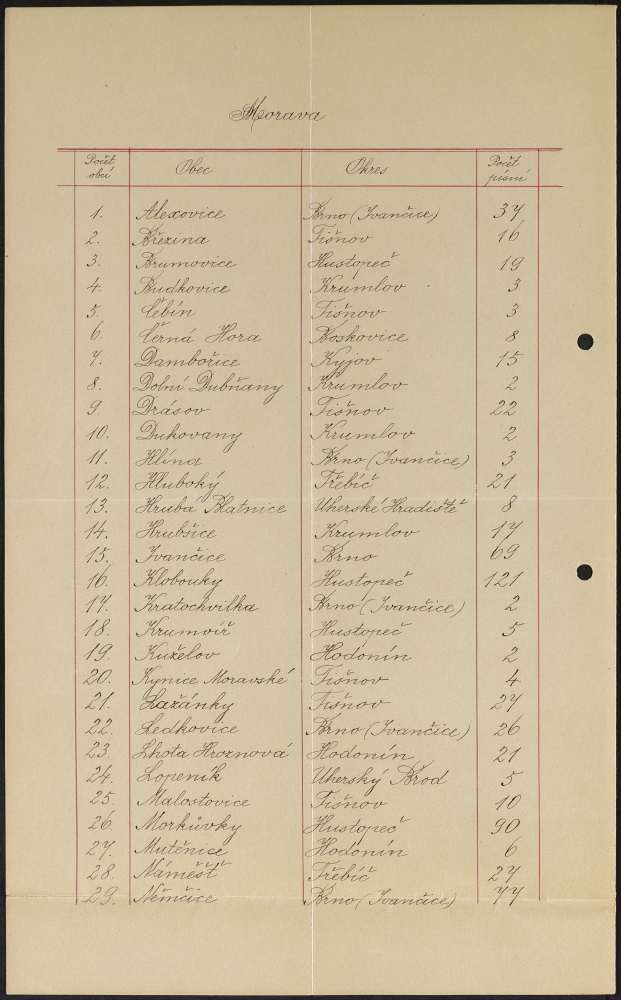 Morava
Počet obcí Obec Okres Počet písní
1. Alexovice Brno (Ivančice) 37
2. Březina Tišnov 16
3. Brumovice Hustopeč 19
4. Budkovice Krumlov 3
5. Čebín Tišnov 3
6. Černá Hora Boskovice 8
7. Dambořice Kyjov 15
8. Dolní Dubňany Krumlov 2
9. Drásov Tišnov 22
10. Dukovany Krumlov 2
11. Hlína Brno (Ivančice) 3
12. Hluboký Třebíč 21
13. Hrubá Blatnice Uherské Hradiště 8
14. Hrubšice Krumlov 17
15. Ivančice Brno 69
16. Klobouky Hustopeč 121
17. Kratochvilka Brno (Ivančice) 2
18. Krumvíř Hustopeč 5
19. Kuželov Hodonín 2
20. Kynice Moravské Tišnov 4
21. Lažánky Tišnov 27
22. Ledkovice Brno (Ivančice) 26
23. Lhota Hroznová Hodonín 21
24. Lopeník Uherský Brod 5
25. Malostovice Tišnov 10
26. Morkůvky Hustopeč 90
27. Mutěnice Hodonín 6
28. Náměšť Třebíč 27
29. Němčice Brno (Ivančice) 77